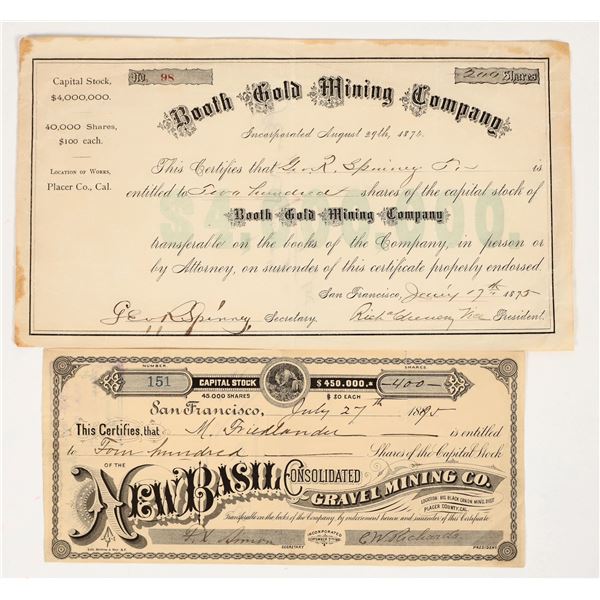 Capital Stock,
$4,000,000.
40,000 Shares,
$100 each.
Location of Works,
Placer Co., Cal.
No. 98
200 Shares
Booth Gold Mining Company
Incorporated August 29th, 1876.
This Certifies that Geo. R. Spinney Tr is
entitled to Two hundred shares of the capital stock of
$4,000,000.
Booth Gold Mining Company
transferable on the books of the Company, in person or
by Attorney, on surrender of this certificate properly endorsed.
San Francisco, 17th 1875
Geo R Spinney Secretary. Vice President.
NUMBER
SHARES
151 CAPITAL STOCK $450,000.00 400
45,000 SHARES $10 EACH
San Francisco, July 27th 1895
This Certifies, that M. Friedlander is entitled
to Four hundred Shares of the Capital Stock
OF THE
New Basil Consolidated
Gravel Mining Co.
LOCATION PLACER COUNTY, CAL.
Transferable on the books of the Company, by endorsement hereon and surrender of this Certificate
INCORPORATED
C W Richards
SECRETARY PRESIDENT